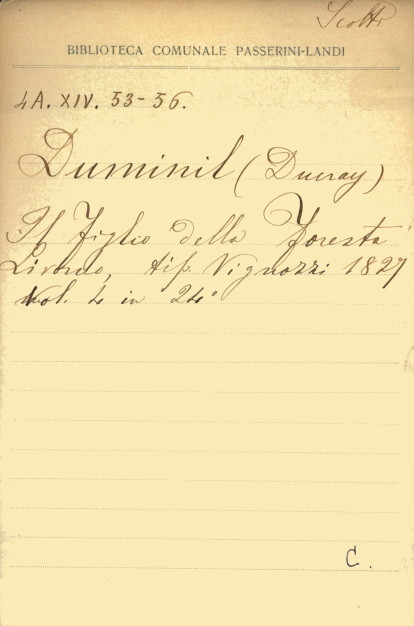 Scotti
BIBLIOTECA COMUNALE PASSERINI-LANDI
4A. XIV. 53-56.
Duminil (Ducray)
Il Figlio della Foresta
Livorno, tip. Vignozzi 1827
vol. 4 in 24°
C.